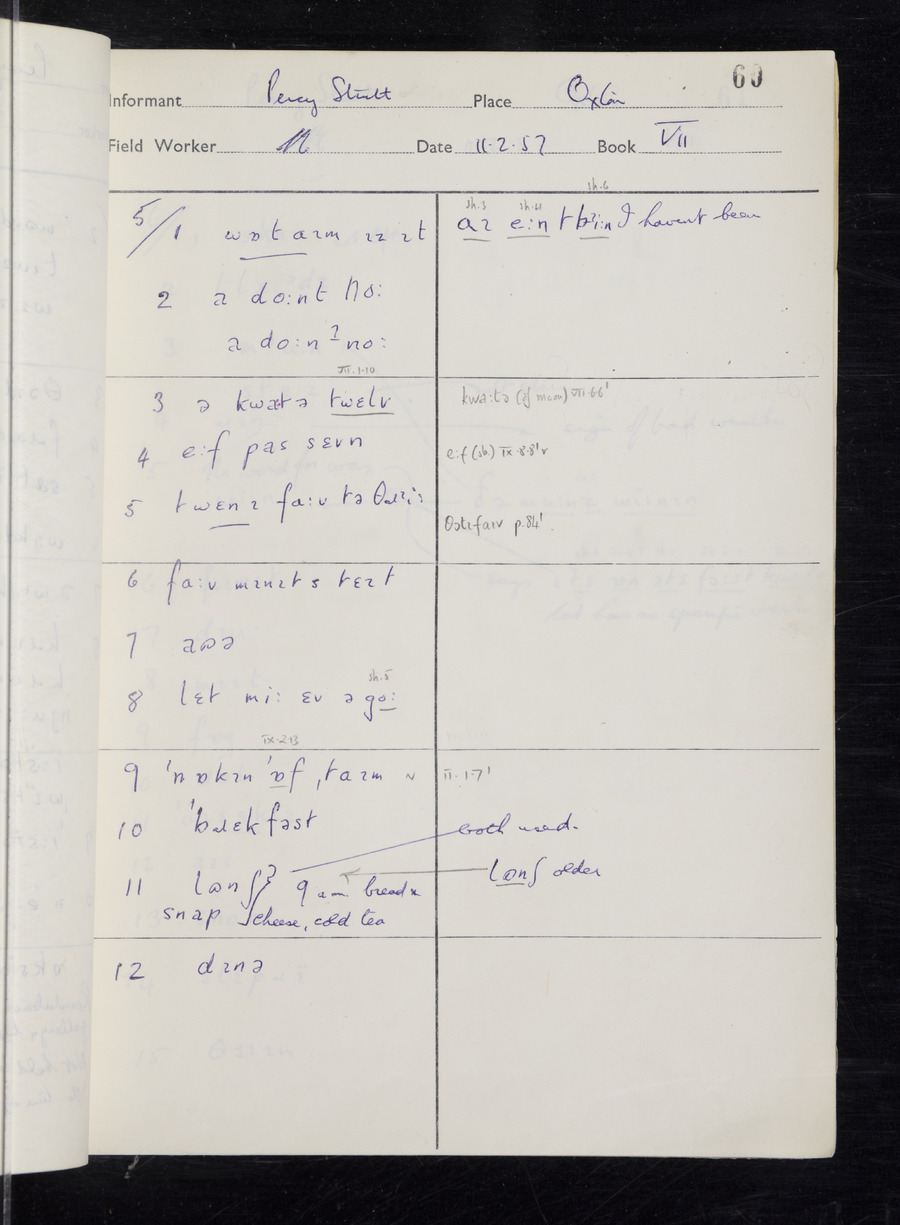 60
Informant Percy Place Oxton
Field Worker Date 11-2-57 Book VII
sh.3 sh.4 sh.6
5/1 wɒt aɪm ɪz ɪt
aɪ e:n t bɪi:n I haven't been
2 a do:nt no:
a do:nʔno:
VII.1-10
3 ə kwætə twɛlv
kwa:tə (of moon) VII.6.6'
4 e:f pas sɛvn
e:f (sb.) IX.8.8'v
5 twɛnɪ fa:v tə
p.84'.
6 fa:v mɪnɪts tɛɪt
7 aɒə
sh.5
8 lɛt mi: ɛv ə go:
IX-2-13
9 'nɒkɪn 'ɒf ,taɪm ~
II.1.7'
10 'bɹɛkfəst
both used.
11 lɒnʃ} 9 a.m. bread &
lɒnʃ older
snap cheese, cold tea
12 dɪnə